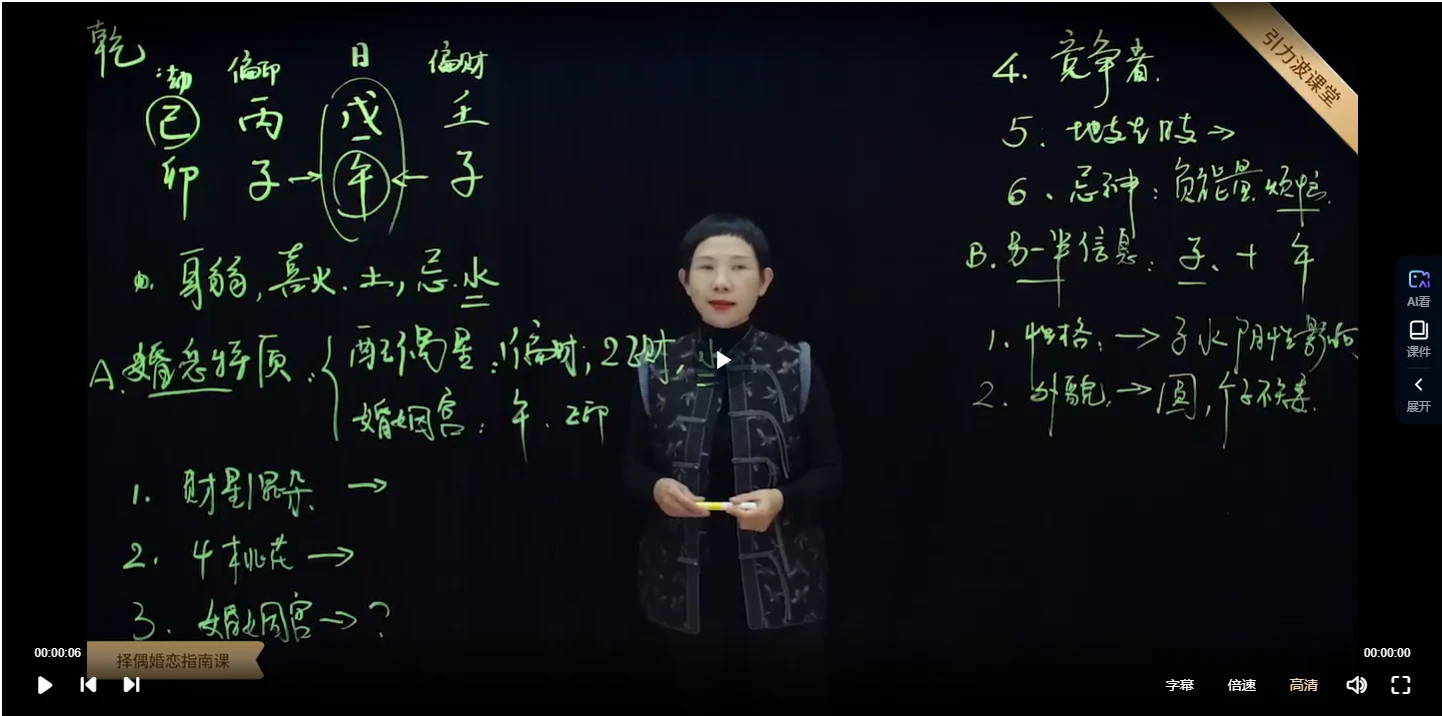 乾
劫 偏印 日 偏财
己 丙 戊 壬
卯 子→午←子
身弱,喜火.土,忌.水
A.婚恋特质:
配偶星:1偏财;2正财,水
婚姻宫:午、正印
1. 财星混杂 →
2. 4桃花→
3. 婚姻宫→?
4. 竞争者.
5. 地支
6、忌神:负能量.烦恼.
B.另一半信息:子、+ 午
1.性格:→子水阴性影响
2. 外貌,→圆,个子不
引力波课堂
AI看
课件
展开
择偶婚恋指南课
00:00:06
00:00:00
字幕 倍速 高清